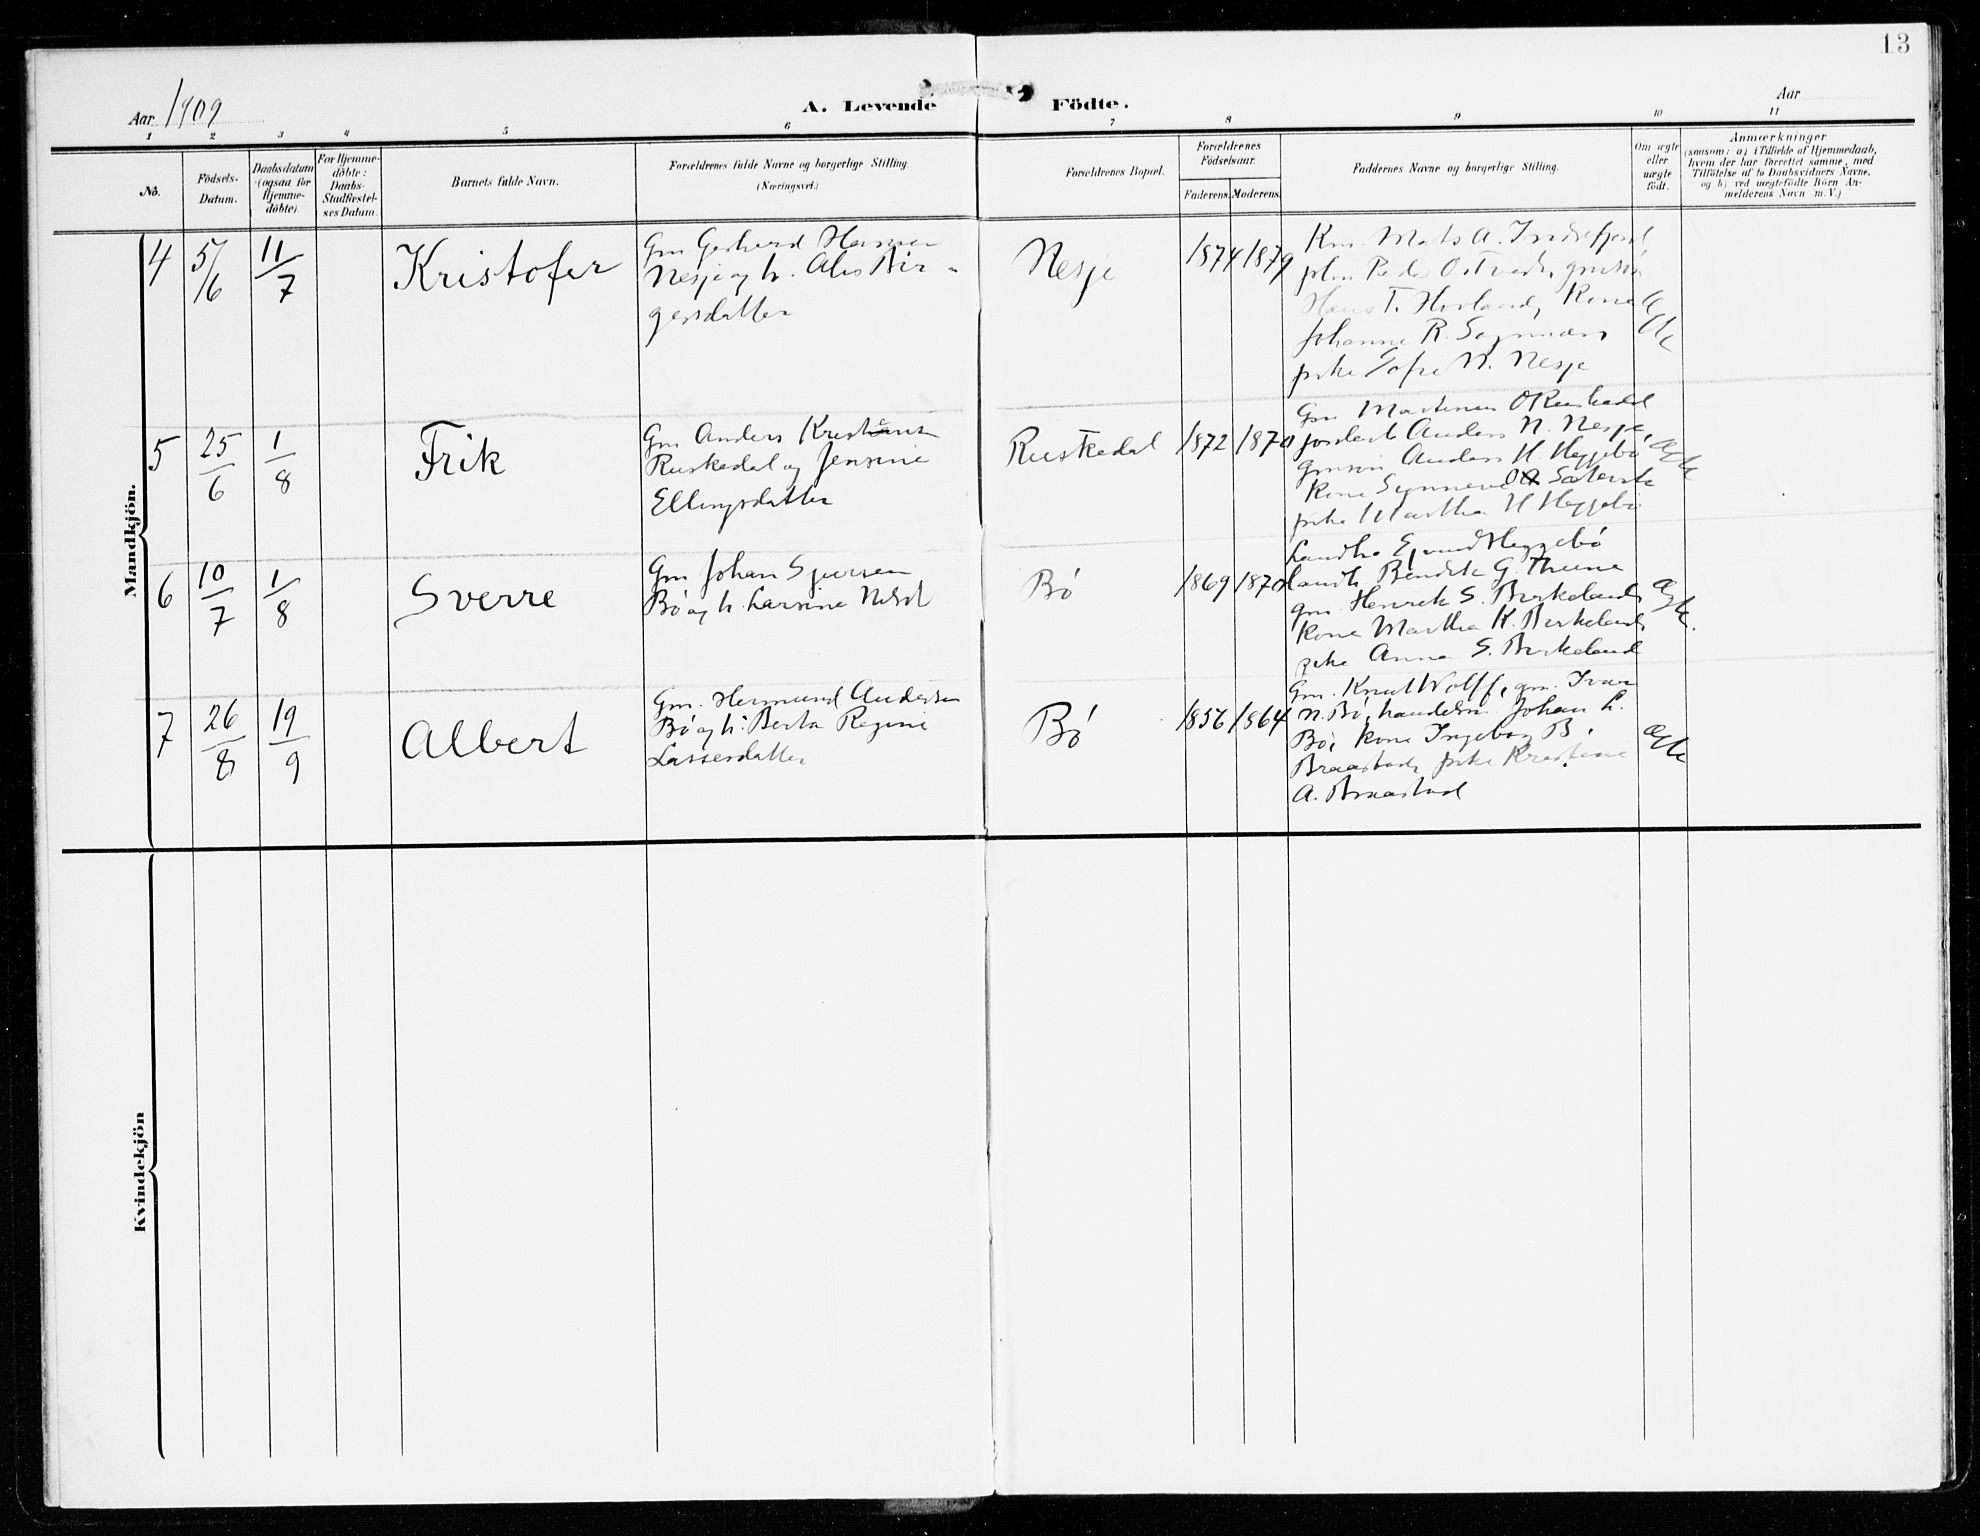 13
Aar 1909
A. Levende Födte.
Aar
1 2 3 4 5 6 7 8 9 10 11
No.
Födsels-
Datum.
Daabsdatum
(ogsaa for
Hjemme-
döbte).
For Hjemme-
döbte:
Daabs-
Stadfæstel-
ses Datum.
Barnets fulde Navn.
Forældrenes fulde Navne og borgerlige Stilling.
(Næringsvei.)
Forældrenes Bopæl.
Forældrenes
Födselsaar.
Faderens. Moderens.
Faddernes Navne og borgerlige Stilling.
Om ægte
eller
uægte
födt.
Anmærkninger
(saasom: a) i Tilfælde af Hjemmedaab,
hvem der har forrettet samme, med
Tilföielse af to Daabsvidners Navne,
og b) ved uægtefödte Börn An-
melderens Navn m. V.)
Mandkjön.
4 5/6 11/7 Kristofer
Gm Gerhard Hansen
Nesje og h. Alis Bir-
gersdatter
Nesje
1874 1879
Km. Mats A. Indrefjord
Peder Ostved, gmsøn
Hans T. Hovland, Kone
Johanne R. Sognnæs
pike Sofie N. Nesje
ægte
5 25/6 1/8 Frik
Gm Anders Kristians
Ruskedal og Jensine
Ellingsdatter
Rustkedal
1872 1870
Gm Martinus O Ruskedal
Anders N. Nesje,
gmsøn Anders H. Heggebø
Kone Synneve O Sæterste
pike Martha H Heggebø
ægte
6 10/7 1/8 Sverre
Gm Johan Sjursen
Bø og h. Larsine Nilsd
Bø
1869 1870
Landh. Ejvind Heggebø
landh. Bendik G. Thune
gm. Henrik S. Birkeland,
Kone Martha K. Birkeland
pike Anna S. Birkeland
ægte.
7 26/8 19/9 Albert
Gm. Hermund Andersen
Bø og h. Berta Regine
Lassesdatter
Bø
1856 1864
Gm. Knut Wolff, gm. Ivar
N. Bø, handelsm. Johan L.
Bø, kone Ingeborg B.
Braastad, pike Kristine
A. Braastad
ægte
Kvindekjön